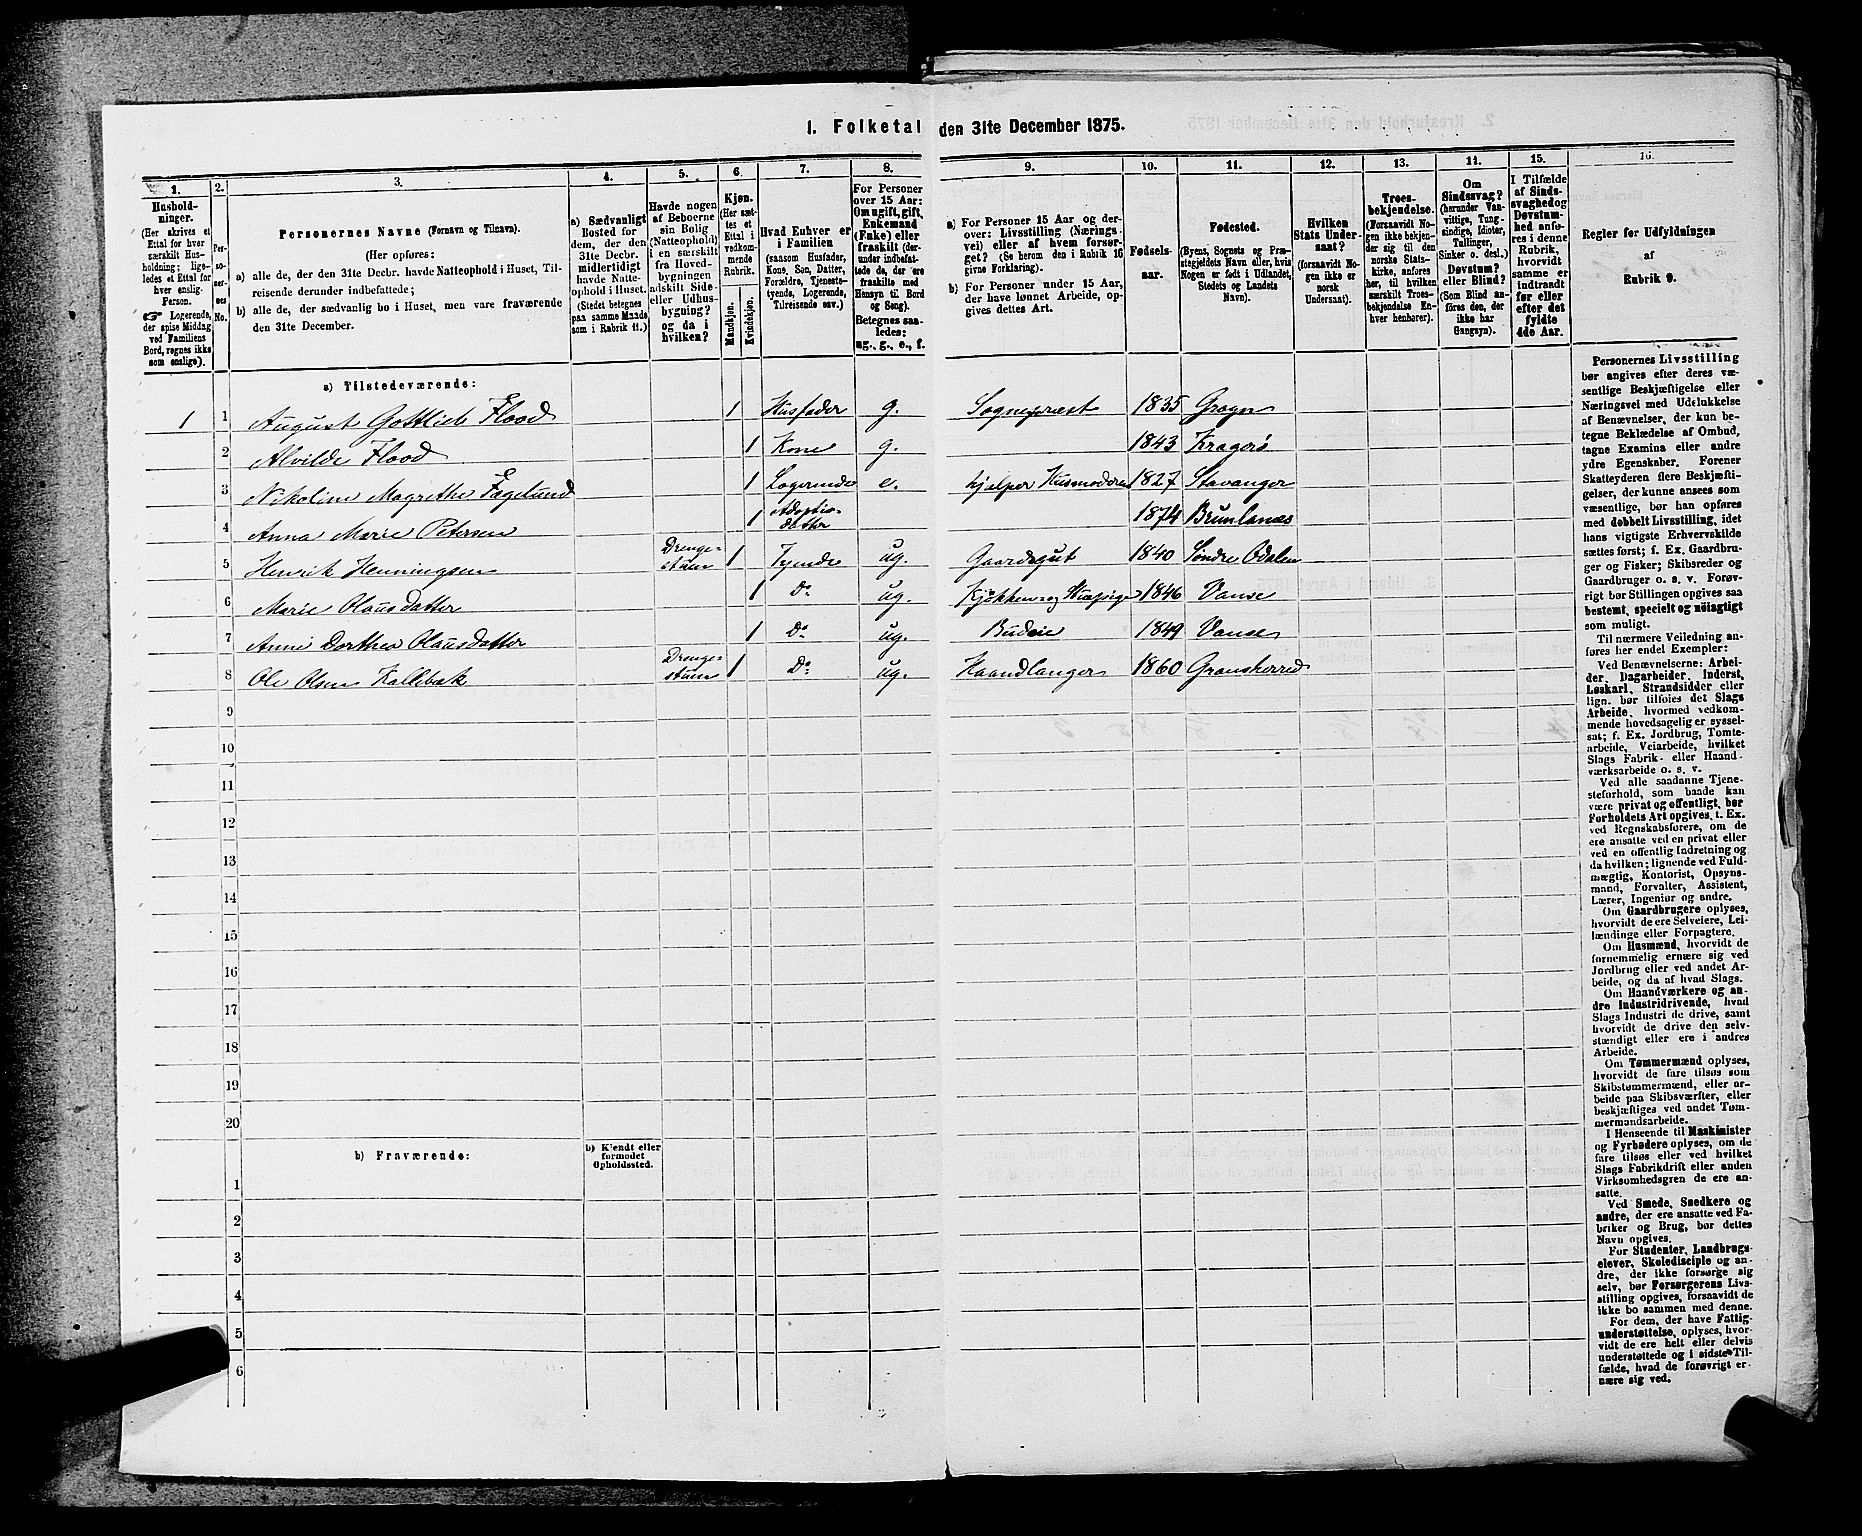 1. Folketal den 31te December 1875.
1. 2. 3. 4. 5. 6. 7. 8. 9. 10. 11. 12. 13. 14. 15. 16.
Husholdninger.
(Her skrives et
Ettal for hver
særskilt Husholdning;
ligeledes et Ettal for
hver enslig
Person.
Logerende,
der spise Middag
ved Familiens
Bord, regnes ikke
som enslige).
Personernes No.
Personernes Navne (Fornavn og Tilnavn).
(Her opføres:
a) alle de, der den 31te Decbr. havde Natteophold i Huset, Tilreisende derunder indbefattede;
b) alle de, der sædvanlig bo i Huset, men vare fraværende
den 31te December.
a) Sædvanligt
Bosted for
dem, der den
31te Decbr.
midlertidigt
havde Natteophold i Huset.
(Stedet betegnes
paa samme Maade
som i Rubrik 11.)
Havde nogen
af Beboerne
sin Bolig
(Natteophold)
i en særskilt
fra Hovedbygningen
adskilt Side- eller Udhusbygning?
og da i
hvilken?
Kjøn.
(Her sættes et
Ettal i
vedkommende
Rubrik.
Mandkjøn.
Kvindekjøn.
Hvad Enhver er
i Familien
(saasom Husfader,
Kone, Søn, Datter,
Forældre, Tjenestetyende, Logerende,
Tilreisende osv.)
For Personer
over 15 Aar:
Om ugift, gift,
Enkemand
(Enke) eller
fraskilt (derunder indbefattede de, der ere
fraskilte med
Hensyn til Bord
og Seng).
Betegnes saaledes:
ug., g., e., f.
a) For Personer 15 Aar og derover: Livsstilling (Næringsvei) eller af hvem forsørget? (Se herom den i Rubrik 16
givne Forklaring).
b) For Personer under 15 Aar,
der have lønnet Arbeide, opgives dettes Art.
Fødselsaar.
Fødested.
(Byens, Sognets og Præstegjeldets Navn eller, hvis
Nogen er født i Udlandet,
Stedets og Landets
Navn).
Hvilken
Stats Undersaat?
(forsaavidt Nogen ikke er
norsk
Undersaat).
Troesbekjendelse.
(Forsaavidt Nogen ikke bekjender sig til den
norske Statskirke, anføres
her, til hvilken
særskilt Troesbekjendelse Enhver henhører).
Om
Sindssvag?
(herunder Vanvittige, Tungsindige, Idioter,
Tullinger,
Sinker o. desl.)
Døvstum?
eller Blind?
(Som Blind anføres den, der
ikke har
Gangsyn).
I Tilfælde
af Sindssvaghed og
Døvstumhed anføres i denne
Rubrik,
hvorvidt
samme er
indtraadt
før eller
efter det
fyldte
4de Aar.
Regler for Udfyldningen
af
Rubrik 9.
a) Tilstedeværende:
1 1 August Gottlieb Flood 1 Husfader g. Sognepræst 1835
2 Alvilde Flood 1 Kone g. 1843 Kragerø
3 Nikoline Magrethe Fagelund 1 Logerende e. hjælper Husmoderen 1827 Stavanger
4 Anna Marie Petersen 1 Adoptivdatter 1874 Brunlanæs
5 Henrik Henningsen Drengestuen 1 Tyende ug. Gaardsgut 1840 Søndre Odalen
6 Marie Olausdatter 1 Do ug. Kjøkken- og Huuspige 1846 Vanse
7 Anne Dorthea Olausdatter 1 Do ug. Budeie 1849 Vanse
8 Ole Olsen Kallebæk Drengestuen 1 Do ug. Haandlanger 1860 Gransherred
9
10
11
12
13
14
15
16
17
18
19
20
b) Fraværende:
b) Kjendt eller
formodet
Opholdssted.
1
2
3
4
5
6
Personernes Livsstilling
bør angives efter deres væsentlige Beskjæftigelse eller
Næringsvei med Udelukkelse
af Benævnelser, der kun betegne Beklædelse af Ombud,
tagne Examina eller andre
ydre Egenskaber. Forener
Skatteyderen flere Beskjæftigelser, der kunne ansees som
væsentlige, bør han opføres
med dobbelt Livsstilling, idet
hans vigtigste Erhvervskilde
sættes først; f. Ex. Gaardbruger og Fisker; Skibsreder og
Gaardbruger o. s. v. Forøvrigt bør Stillingen opgives saa
bestemt, specielt og nöiagtigt
som muligt.
Til nærmere Veiledning anføres her endel Exempler:
Ved Benævnelserne: Arbeider, Dagarbeider, Inderst,
Løskarl, Strandsidder eller
lign. bør tilføies det Slags
Arbeide, hvormed vedkommende hovedsagelig er sysselsat; f. Ex. Jordbrug, Tomtearbeide, Veiarbeide, hvilket
Slags Fabrik- eller Haandværksarbeide o. s. v.
Ved alle saadanne Tjenesteforhold, som baade kan
være privat og offentligt, bør
Forholdets Art opgives, t. Ex.
ved Regnskabsførere, om de
ere ansatte ved en privat eller
ved en offentlig Indretning og
da hvilken; lignende ved Fuldmægtig, Kontorist, Opsynsmand, Forvalter, Assistent,
Lærer, Ingeniør og andre.
Om Gaardbrugere oplyses,
hvorvidt de ere Selveiere, Leilændinge eller Forpagtere.
Om Husmænd, hvorvidt de
fornemmelig ernære sig ved
Jordbrug eller ved andet Arbeide, og da af hvad Slags.
Om Haandværkere og andre Industridrivende, hvad
Slags Industri de drive, samt
hvorvidt de drive den selvstændigt eller ere i andres
Arbeide.
Om Tømmermænd oplyses,
hvorvidt de fare tilsøs som
Skibstømmermænd, eller arbeide paa Skibsværfter, eller
beskjæftiges ved andet Tømmermandsarbeide.
I Henseende til Maskinister
og Fyrbødere oplyses, om de
fare tilsøs eller ved hvilket
Slags Fabrikdrift eller anden
Virksomhedsgren de ere ansatte.
Ved Smede, Snedkere og
andre, der ere ansatte ved Fabriker og Brug, bør dettes
Navn opgives.
For Studenter, Landbrugselever, Skoledisciple og andre, der ikke forsørge sig
selv, bør Forsørgerens Livsstilling opgives, forsaavidt de
ikke bo sammen med denne.
For dem, der have Fattigunderstøttelse, oplyses, hvorvidt de ere helt eller delvis
understøttede og i sidste Tilfælde, hvad de forøvrigt ernære sig ved.